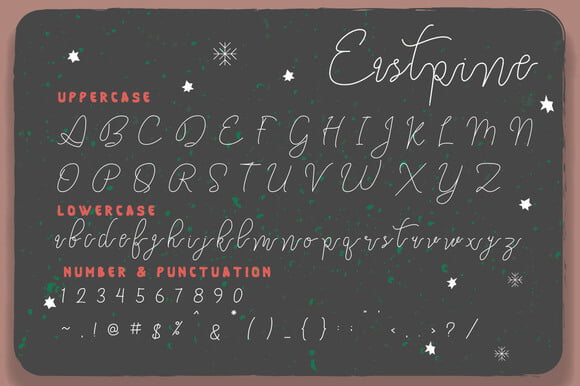 Eastpine
UPPERCASE
A B C D E F G H I J K L M N
O P Q R S T U V W X Y Z
LOWERCASE
abcdefghijklmnopqrstuvwxyz
NUMBER & PUNCTUATION
1 2 3 4 5 6 7 8 9 0
~ . ! @ # $ % ^ & * ( ) _ { } : ; " < . . > ? /